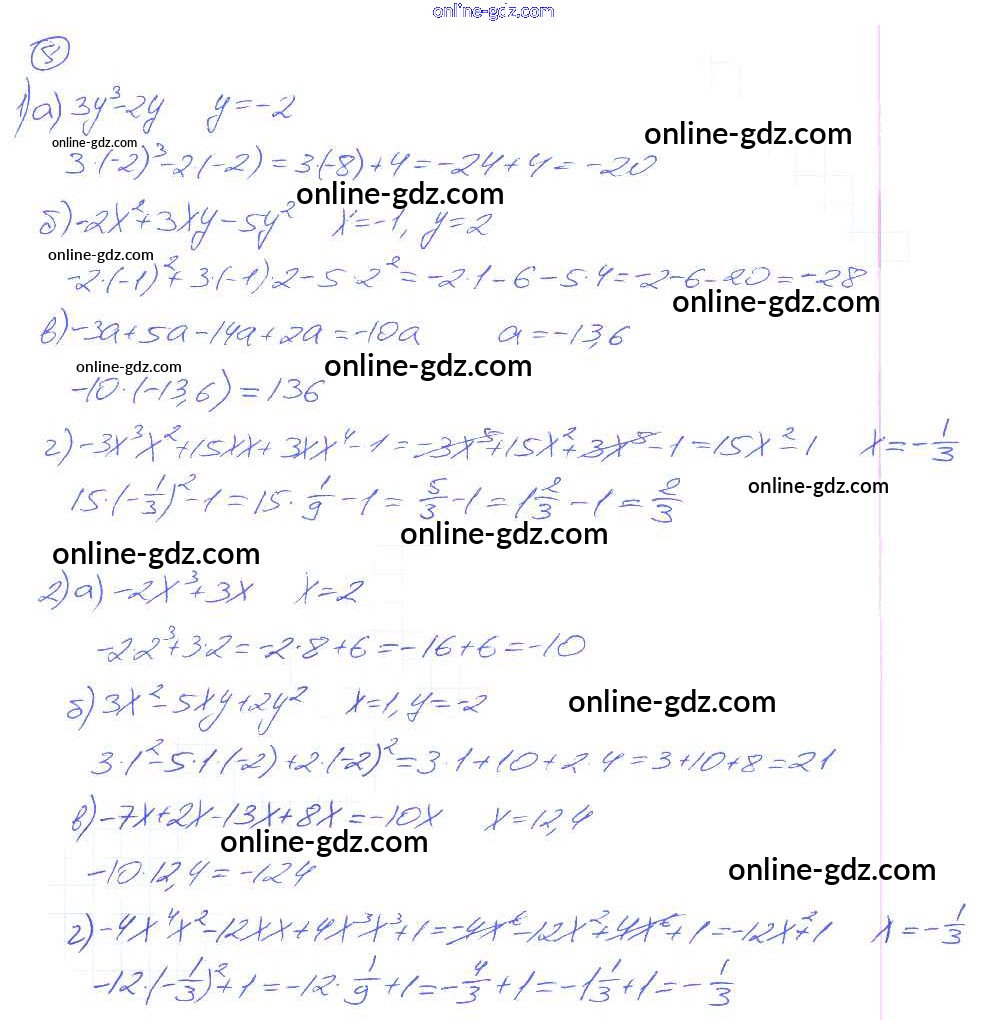 online-gdz.com
8
1) а) 3y³-2y y=-2
online-gdz.com
online-gdz.com
3·(-2)³-2(-2)=3·(-8)+4=-24+4=-20
online-gdz.com
б) -2x²+3xy-5y² x=-1, y=2
online-gdz.com
-2·(-1)²+3·(-1)·2-5·2²=-2·1-6-5·4=-2-6-20=-28
online-gdz.com
в) -3a+5a-14a+2a=-10a a=-13,6
online-gdz.com
online-gdz.com
-10·(-13,6)=136
г) -3x³x²+15xx+3xx⁴-1=-3x⁵+15x²+3x⁵-1=15x²-1 x=-1/3
online-gdz.com
15·(-1/3)²-1=15·1/9-1=5/3-1=1 2/3-1=2/3
online-gdz.com
online-gdz.com
2) а) -2x³+3x x=2
-2·2³+3·2=-2·8+6=-16+6=-10
б) 3x²-5xy+2y² x=1, y=-2
online-gdz.com
3·1²-5·1·(-2)+2·(-2)²=3·1+10+2·4=3+10+8=21
в) -7x+2x-13x+8x=-10x x=12,4
online-gdz.com
online-gdz.com
-10·12,4=-124
г) -4x⁴x²-12xx+4x³x³+1=-4x⁶-12x²+4x⁶+1=-12x²+1 x=-1/3
-12·(-1/3)²+1=-12·1/9+1=-4/3+1=-1 1/3+1=-1/3